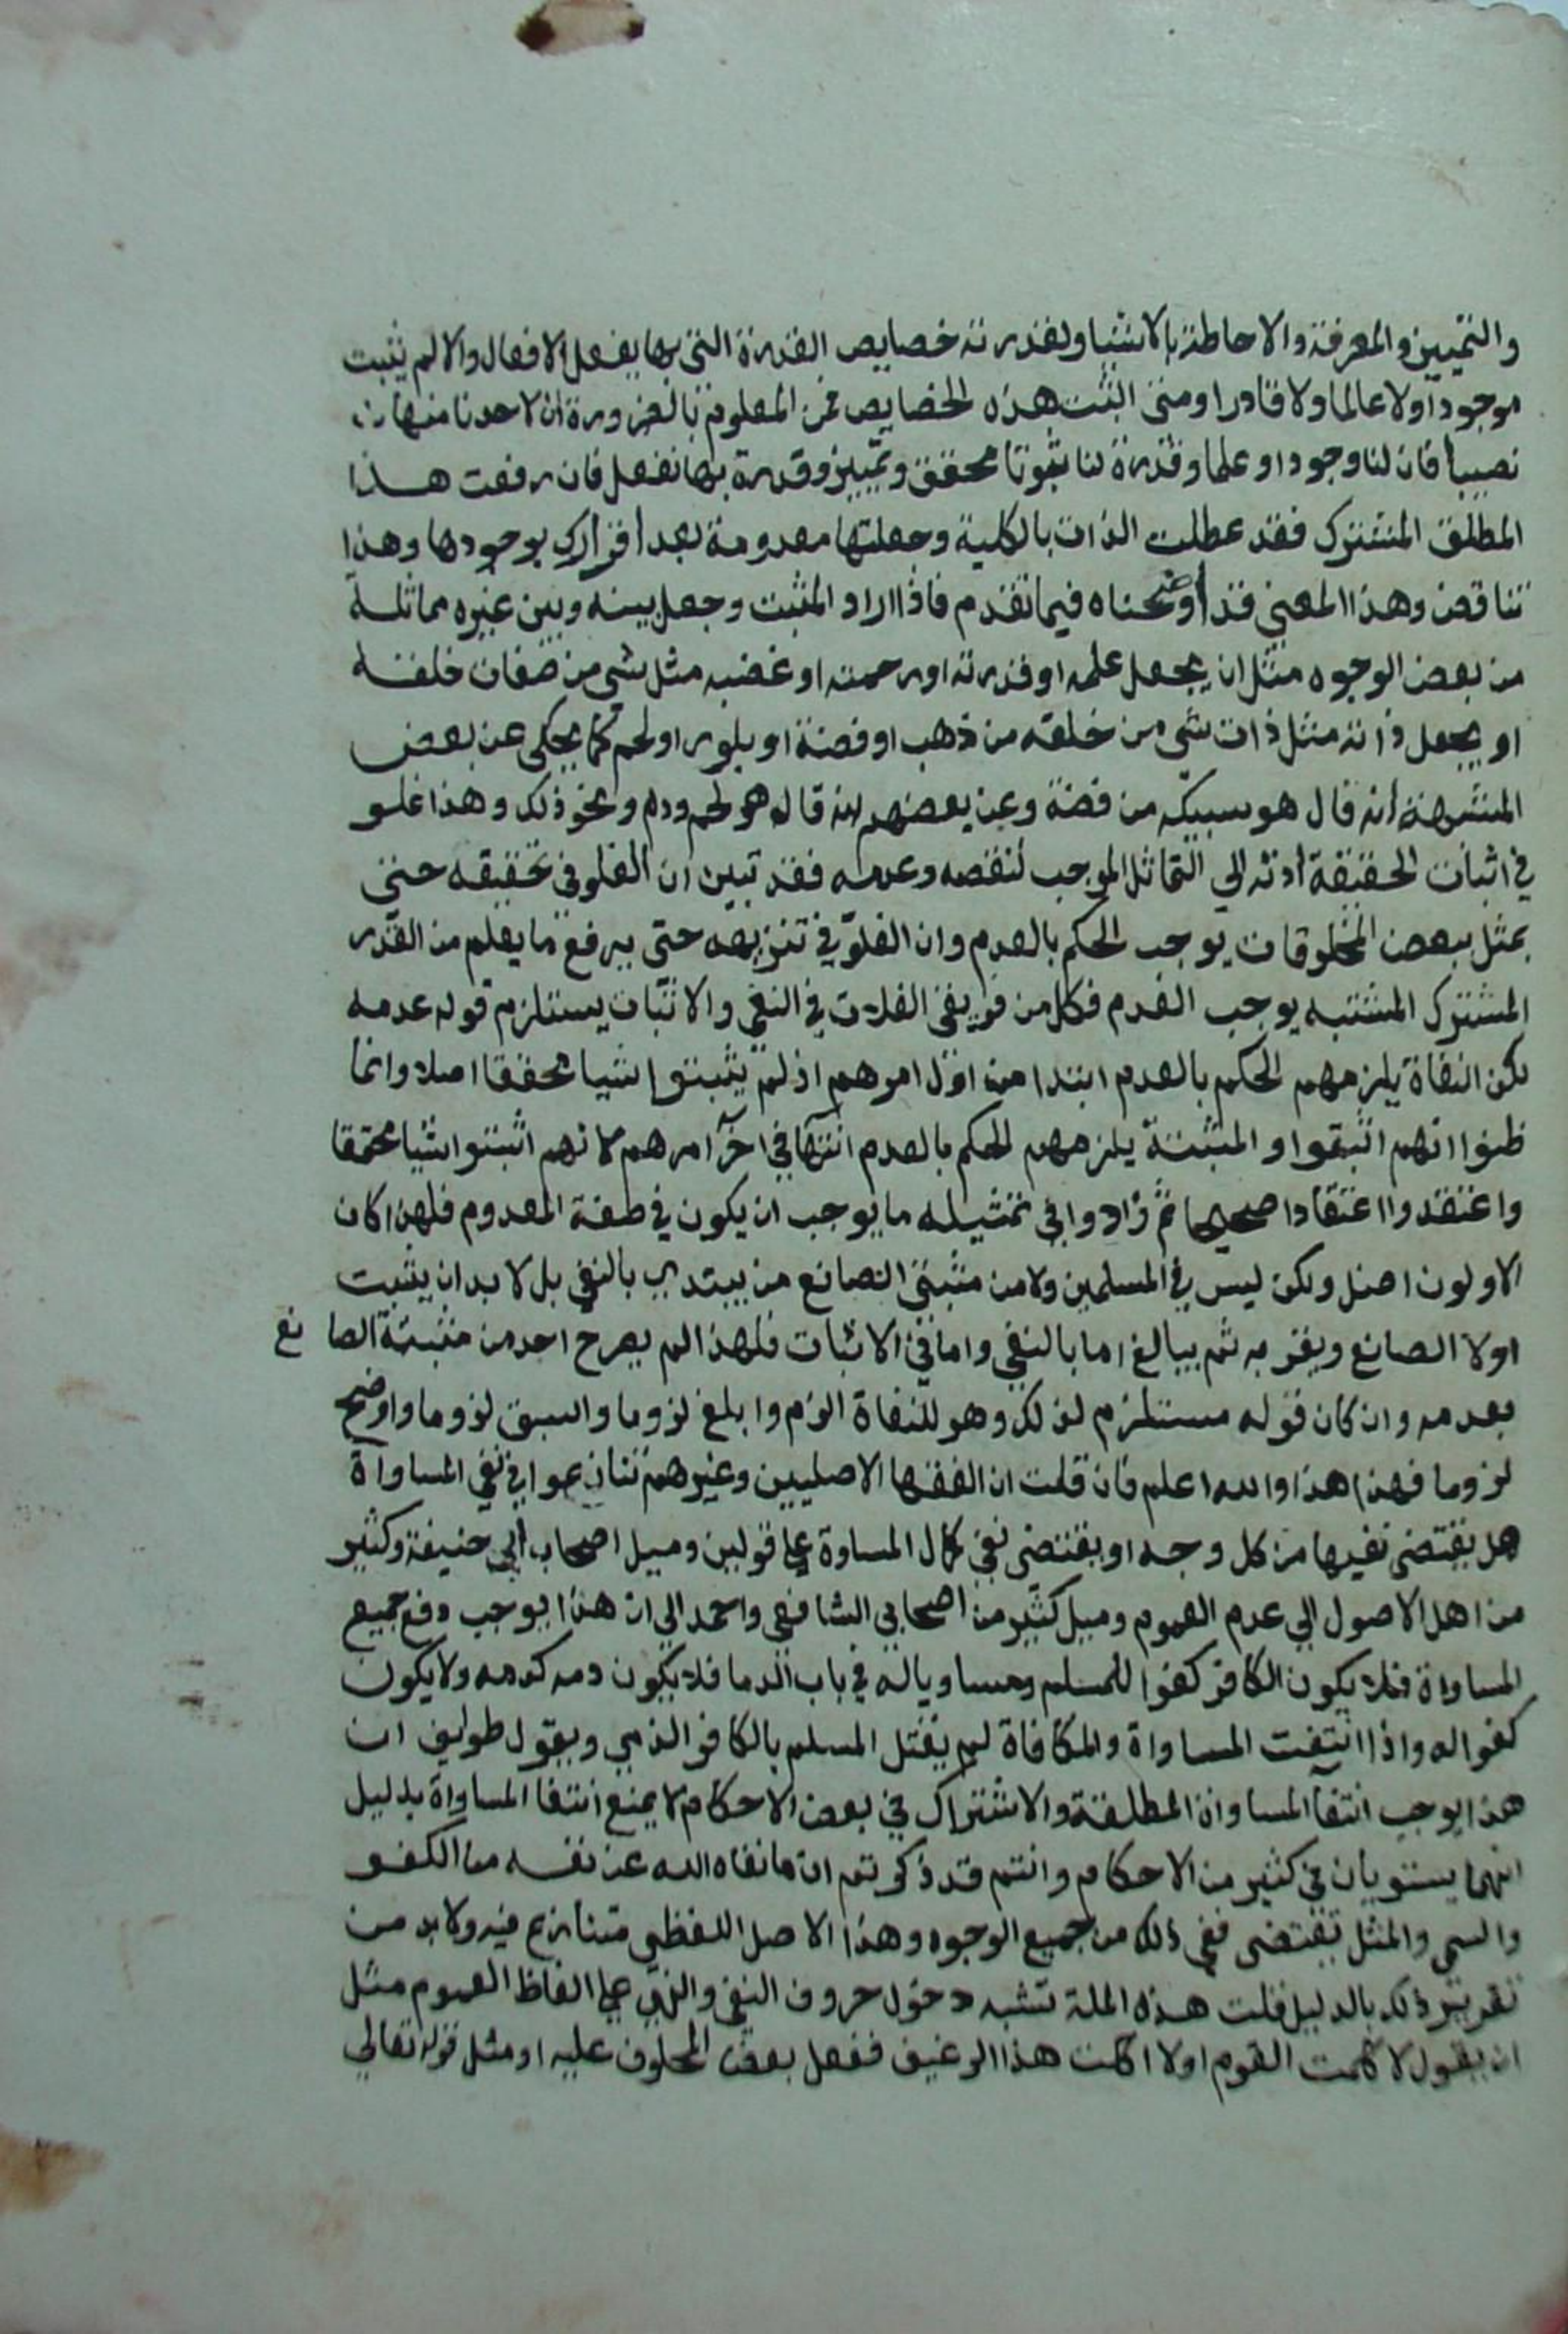 والتمييز والمعرفة والاحاطة بالاشيا ولقدرته خصايص القدرة التي بها يفعل الافعال والا لم يثبت
موجودا ولا عالما ولا قادرا ومتى اثبت هذه الخصايص فمن المعلوم بالضرورة ان لاحدنا منها
نصيبا فان لنا وجودا وعلما وقدرة لنا ثبوتا محقق وتمييز وقدرة بها نفعل فان رفعت هذا
المطلق المشترك فقد عطلت الذات بالكلية وجعلتها معدومة بعد اقرارك بوجودها وهذا
تناقض وهذا المعنى قد اوضحناه فيما تقدم فاذا اراد المثبت وجعل بينه وبين غيره مماثلة
من بعض الوجوه مثل ان يجعل علمه او قدرته او رحمته او غضبه مثل شي من صفات خلقه
او يجعل ذاته مثل ذات شي من خلقه من ذهب او فضة او بلور او لحم كما يحكى عن بعض
المشبهة انه قال هو سبيكه من فضة وعن بعضهم انه قال هو لحم ودم ونحو ذلك وهذا غلو
في اثبات الحقيقة ادته الي التماثل الموجب لنقصه وعدمه فقد تبين ان الغلو في تحقيقه حتى
يمثل ببعض المخلوقات يوجب الحكم بالعدم وان الغلو في تنزيهه حتى يرفع ما يعلم من القدر
المشترك المشتبه يوجب العدم فكل من فريقي الغلات في النفي والاثبات يستلزم قوله عدمه
لكن النفاة يلزمهم الحكم بالعدم ابتدا من اول امرهم اذ لم يثبتوا شيا محققا اصلا وانما
ظنوا انهم اثبتوا والمثبتة يلزمهم الحكم بالعدم انتهآ في اخر امرهم لانهم اثبتوا شيا محققا
واعتقدوا اعتقادا صحيحا ثم زادوا في تمثيله ما يوجب ان يكون في صفة المعدوم فلهذا كان
الاولون اضل ولكن ليس في المسلمين ولا من مثبتي الصانع من يبتدي بالنفي بل لا بد ان يثبت
اولا الصانع ويقر به ثم يبالغ اما بالنفي واما في الاثبات فلهذا لم يصرح احد من مثبتة الصانع
بعدمه وان كان قوله مستلزم لذلك وهو للنفاة الزم وابلغ لزوما واسبق لزوما واوضح
لزوما فهذا هذا والله اعلم فان قلت ان الفقها الاصليين وغيرهم تنازعوا في نفي المساواة
هل يقتضي نفيها من كل وجه او يقتضي نفي كمال المساوة على قولين وميل اصحاب ابي حنيفة وكثير
من اهل الاصول الي عدم العموم وميل كثير من اصحابي الشافعي واحمد الي ان هذا يوجب دفع جميع
المساواة فلا يكون الكافر كفوا للمسلم ومساويا له في باب الدما فلا يكون دمه كدمه ولا يكون
كفوا له واذا انتفت المساواة والمكافاة لم يقتل المسلم بالكافر الذمي ويقول طوايف ان
هذا يوجب انتفآ المساواة المطلقة والاشتراك في بعض الاحكام لا يمنع انتفا المساواة بدليل
انهما يستويان في كثير من الاحكام وانتم قد ذكرتم ان ما نفاه الله عن نفسه من الكفو
والسمي والمثل يقتضي نفي ذلك من جميع الوجوه وهذا الاصل اللفظي متنازع فيه ولا بد من
تقرير ذلك بالدليل قلت هذه الملة تشبه دخول حروف النفي والنهي على الفاظ العموم مثل
ان يقول لا كلمت القوم او لا اكلت هذا الرغيف ففعل بعض المحلوف عليه او مثل قوله تعالي